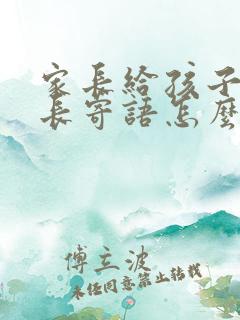 家長給孩子
長寄語怎麽
傅立波
未经同意禁止转载